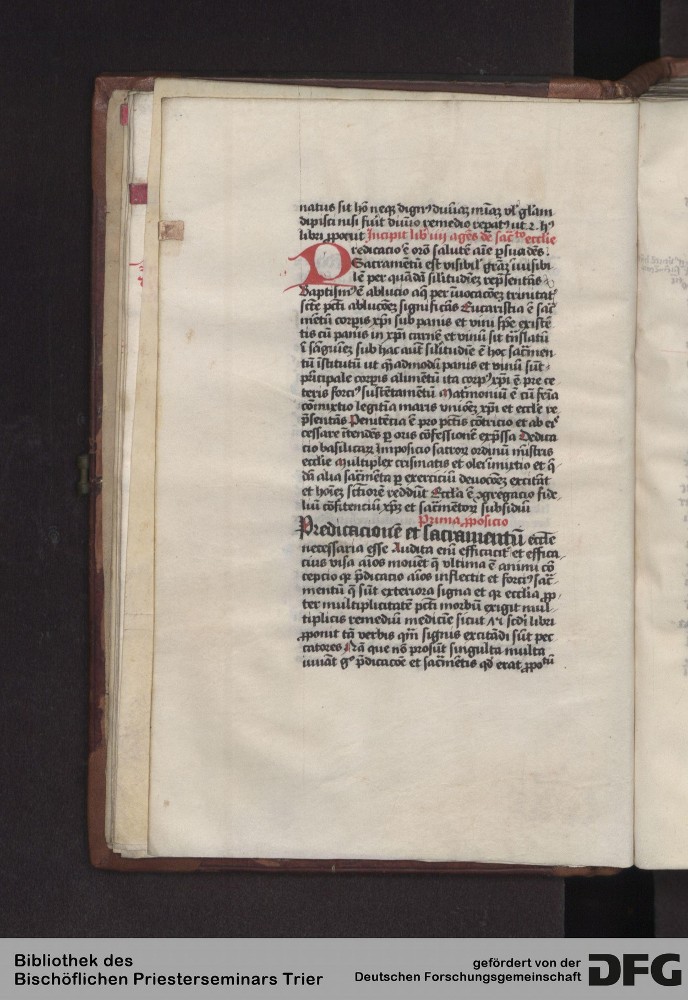 natus sit hō neq; dignꝰ diuīaꝝ mīaꝝ vł głam
dipisci nisi fuīt diuīo remedio reꝑatꝰ ut 2 hꝰ
libri ꝓponit Incipit lib iiii agēs de sac̄tis ecclie
Predicacio ē oro͞ salutē aīe ꝑsuadēs.
Sacramētū est visibił grāꝫ īuisibi
lē per quādā silitudīeꝫ repn̄sentās
Baptismꝰ ē ablucio aq̄ per īuocacōeꝫ trinitatꝭ
scte pcti ablucōeꝫ significās Eucaristia ē sac̄
mētū corpꝭis xp̄i sub panis et vini spe existē
tis cū panis in xp̄i carnē et vinū sit tn̄slatū
ī sāguīeꝫ sub hac aut silitudīe ē hoc sac̄men
tū īstitutū ut q̄adi modū panis et vinū sūt
pricipale corpis alimētū ita corpꝰ xp̄i ē pre ce
teris forciꝰ sustētamētū Matīmoniū ē cū feīa
cōmixtio legitīa maris vnioēꝫ xp̄i et ecclē re
p̄sentās Penitēcia ē pro pctis cōtricio et ab eiꝰ
cessare ītendēs ꝑ oris cōfessionē exp̄ssa Dedica
cio basilicaꝝ Imposicio sacroꝝ ordinū mīstris
ecclie Multiplex crismatis et olei īnixtio et q̄
dā alia sac̄mēta ꝑ exerciciū deuocōeꝫ excitāt
et hoīeꝫ sctiorē reddūt Eccła ē ɔgregacio fide
liū cōfitenciū xp̄ꝫ et sac̄mētoꝝ subsidiū
Prima ꝓposicio
Predicacionē et sacramentū eccłe
necessaria esse Audita enī efficaciꝰ et effica
cius visa aīos mouēt q̄ vltima ē animi cō
cepcio qꝛ p̄dicacio aīos inflectit et forciꝰ sac̄
mentū q̄ sūt exteriora signa et qꝛ ecclia ꝓp
ter multiplicitatē pcti morbū exigit mul
tiplicis remediū medicīe sicut 21 scdi libri
ꝓponit tā verbis q̄m signis excitādi sūt pec
catores Nā que nō prosūt singula multa
iuuāt gꝰ p̄dicacōe et sac̄mētis qd̄ erat ꝓpoꝰitū
Bibliothek des
Bischöflichen Priesterseminars Trier
gefördert von der
Deutschen Forschungsgemeinschaft
DFG